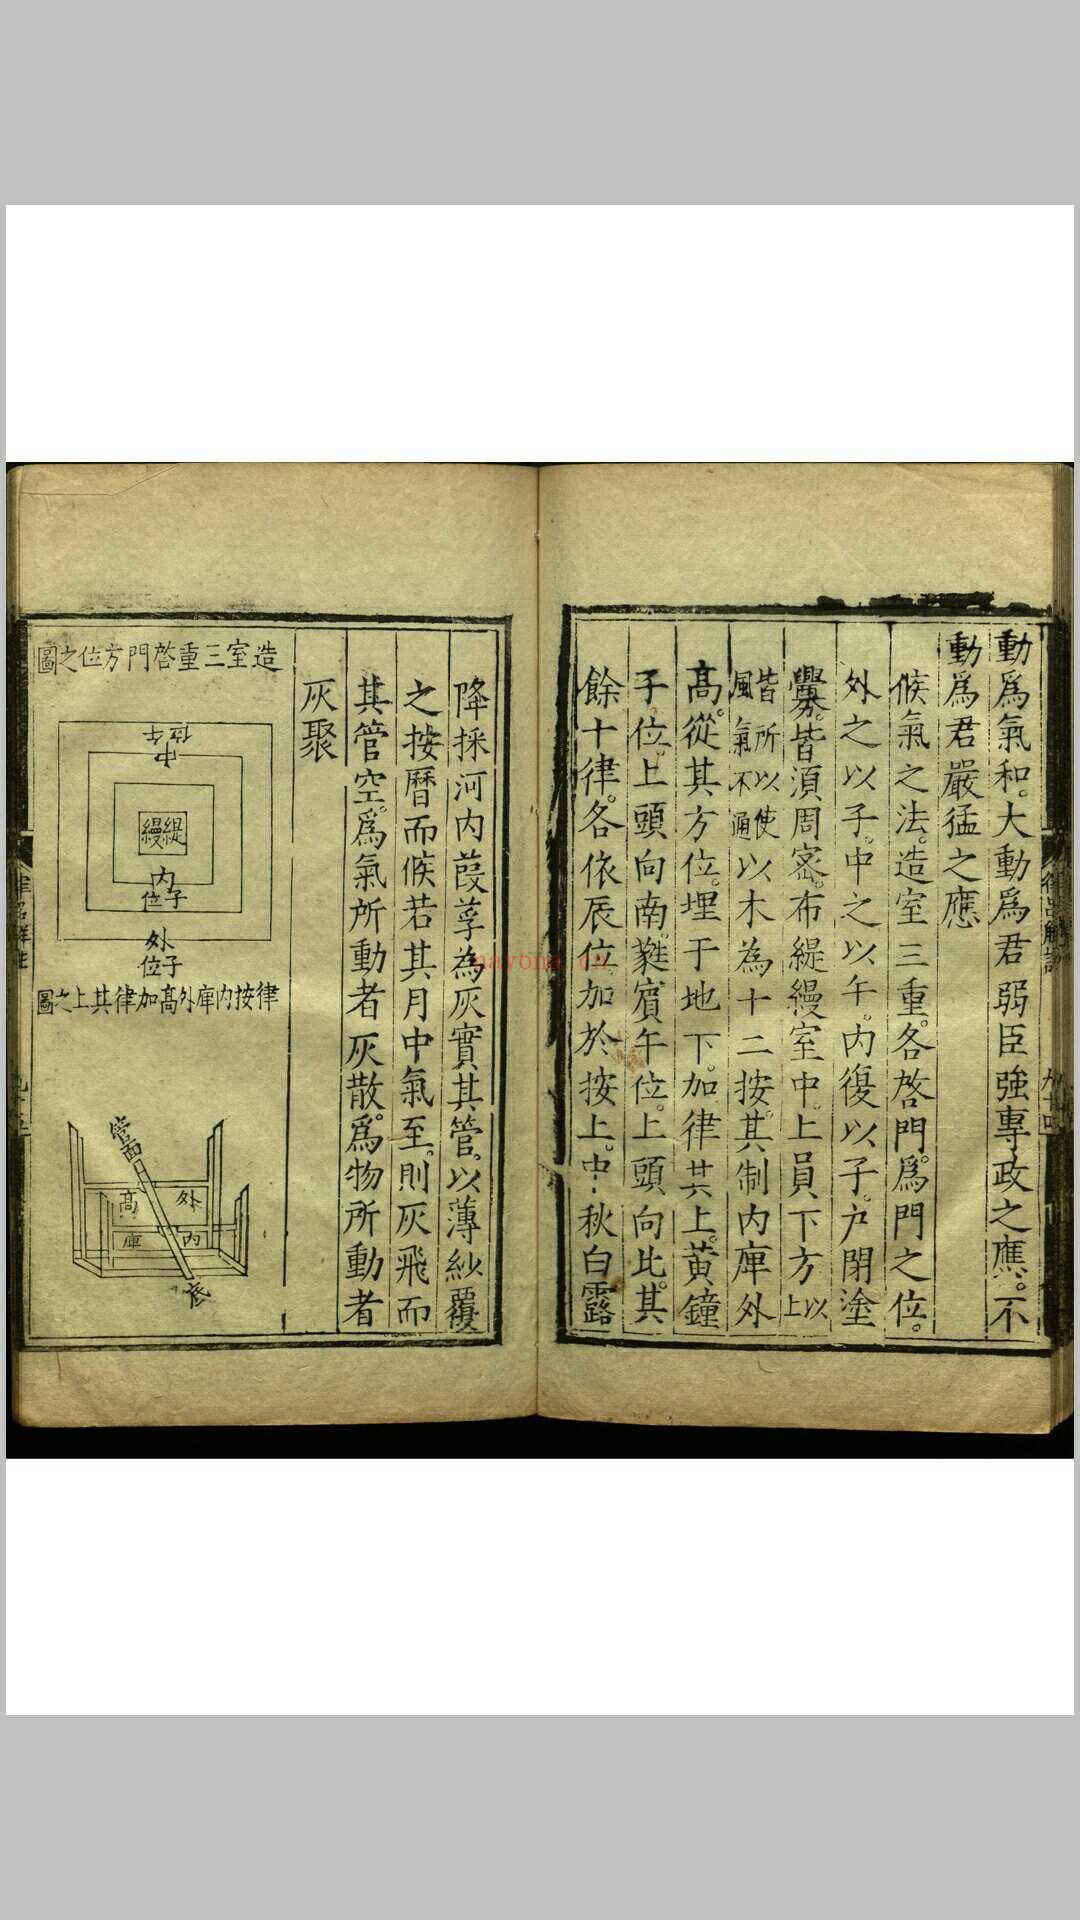 動爲氣和。大動爲君弱臣強專政之應。不
動爲君嚴猛之應
候氣之法。造室三重。各啓門。爲門之位。
外之以子。中之以午。內復以子。户閉塗
釁。皆須周密。布緹縵室中。上員下方以上
皆所以使風氣不通以木為十二按。其制內庳外
高。從其方位。埋于地下。加律其上。黄鐘
子位。上頭向南。蕤賓午位。上頭向北。其
餘十律。各依辰位加於按上。中秋白露
降採河內葭莩為灰實其管。以薄紗覆
之按曆而候若其月中氣至。則灰飛而
其管空。爲氣所動者灰散。爲物所動者
灰聚
造室三重啓門方位之圖
午位
中
緹縵
內
子位
外
子位
律按內庳外高加律其上之圖
管面
外高
內庳
底
律呂解註
nayona.cn